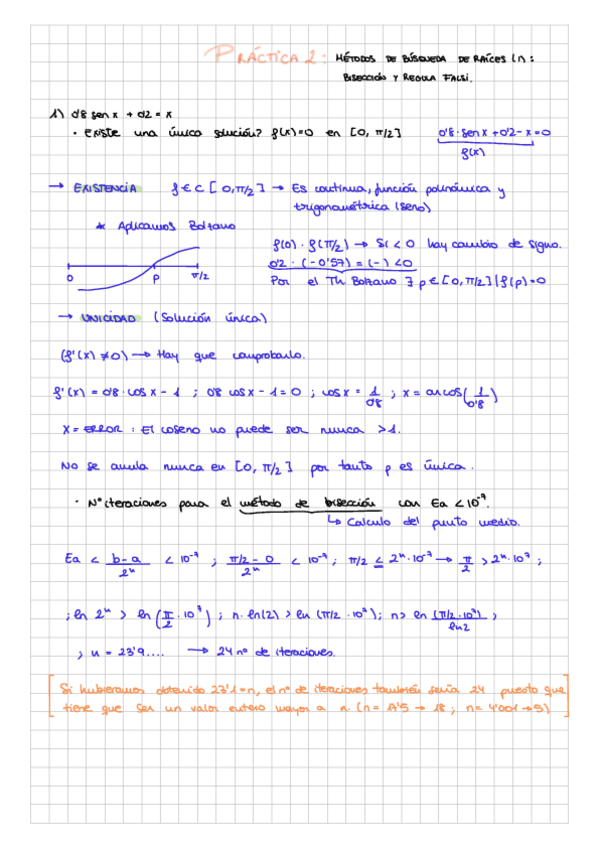 PRÁCTICA 2: MÉTODOS DE BÚSQUEDA DE RAÍCES (I):
BISECCIÓN Y REGULA FALSI.
1) 0'8 sen x + 0'2 = x
· EXISTE una única solución? f(x)=0 en [0, π/2] 0'8·sen x + 0'2 - x = 0
f(x)
→ EXISTENCIA f ∈ C [0, π/2] → Es continua, función polinómica y
trigonométrica (seno)
* Aplicamos Bolzano
f(0) · f(π/2) → Si < 0 hay cambio de signo.
0'2 · (-0'57) = (-) < 0
0 P π/2
Por el Th Bolzano ∃ p ∈ [0, π/2] | f(p)=0
→ UNICIDAD (Solución única)
(f'(x) ≠ 0) → Hay que comprobarlo.
f'(x) = 0'8 · cos x - 1 ; 0'8 cos x - 1 = 0 ; cos x = 1/0'8 ; x = arcos(1/0'8)
X = ERROR : El coseno no puede ser nunca > 1.
No se anula nunca en [0, π/2] por tanto p es única.
· Nº iteraciones para el método de bisección con Ea < 10⁻⁷.
↳ Calculo del punto medio.
Ea < b-a/2ⁿ < 10⁻⁷ ; π/2 - 0/2ⁿ < 10⁻⁷ ; π/2 ≤ 2ⁿ·10⁻⁷ → π/2 > 2ⁿ·10⁷ ;
; ln 2ⁿ > ln(π/2 · 10⁷) ; n·ln(2) > ln(π/2 · 10⁷) ; n > ln(π/2·10⁷)/ln2 ;
; n = 23'9.... → 24 nº de iteraciones.
[Si hubieramos obtenido 23'1 = n, el nº de iteraciones también sería 24 puesto que
tiene que ser un valor entero mayor a n. (n = 17'5 → 18 ; n = 4'001 → 5)]